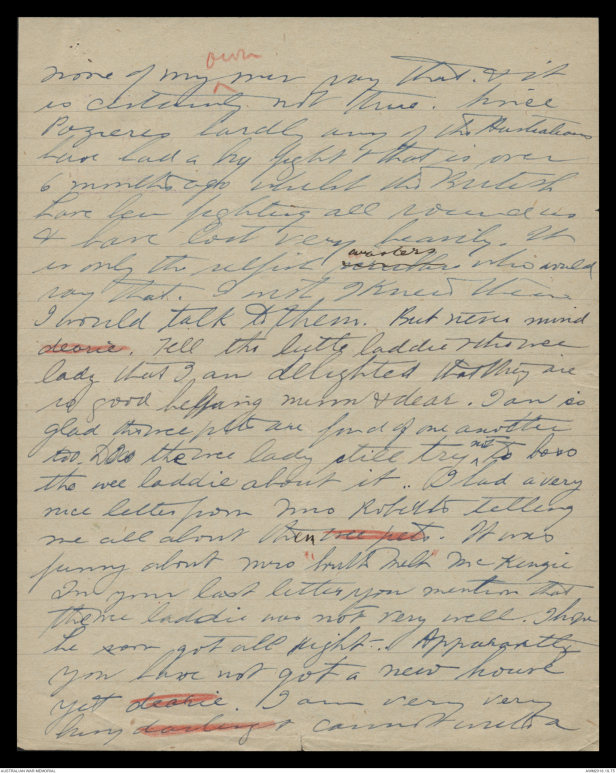 own
none of my ^ men say that. & it
is certainly not true. Since
Pozieres hardly any of the Australians
have had a big fight & that is over
6 months ago whilst the British
have been fighting all round us
& have lost very heavily. It
wasters
is only the selfish who would
say that. I knew them
I would talk to them. But never mind
dearie. Tell the little laddie & the wee
lady that I am delighted that they are
so good helping mum & dear. I am so
glad the wee pets are fond of one another
too. Does the wee lady still try not to boss
the wee laddie about it.. I had a very
nice letter from Mrs Roberts telling
me all about them wee pets. It was
funny about Mrs "  " McKenzie
In your last letter you mention that
the wee laddie was not very well. I hope
he soon got all right.. Apparently
you have not got a new house
yet dearie. I am very very
busy darling & cannot write a
AUSTRALIAN WAR MEMORIAL